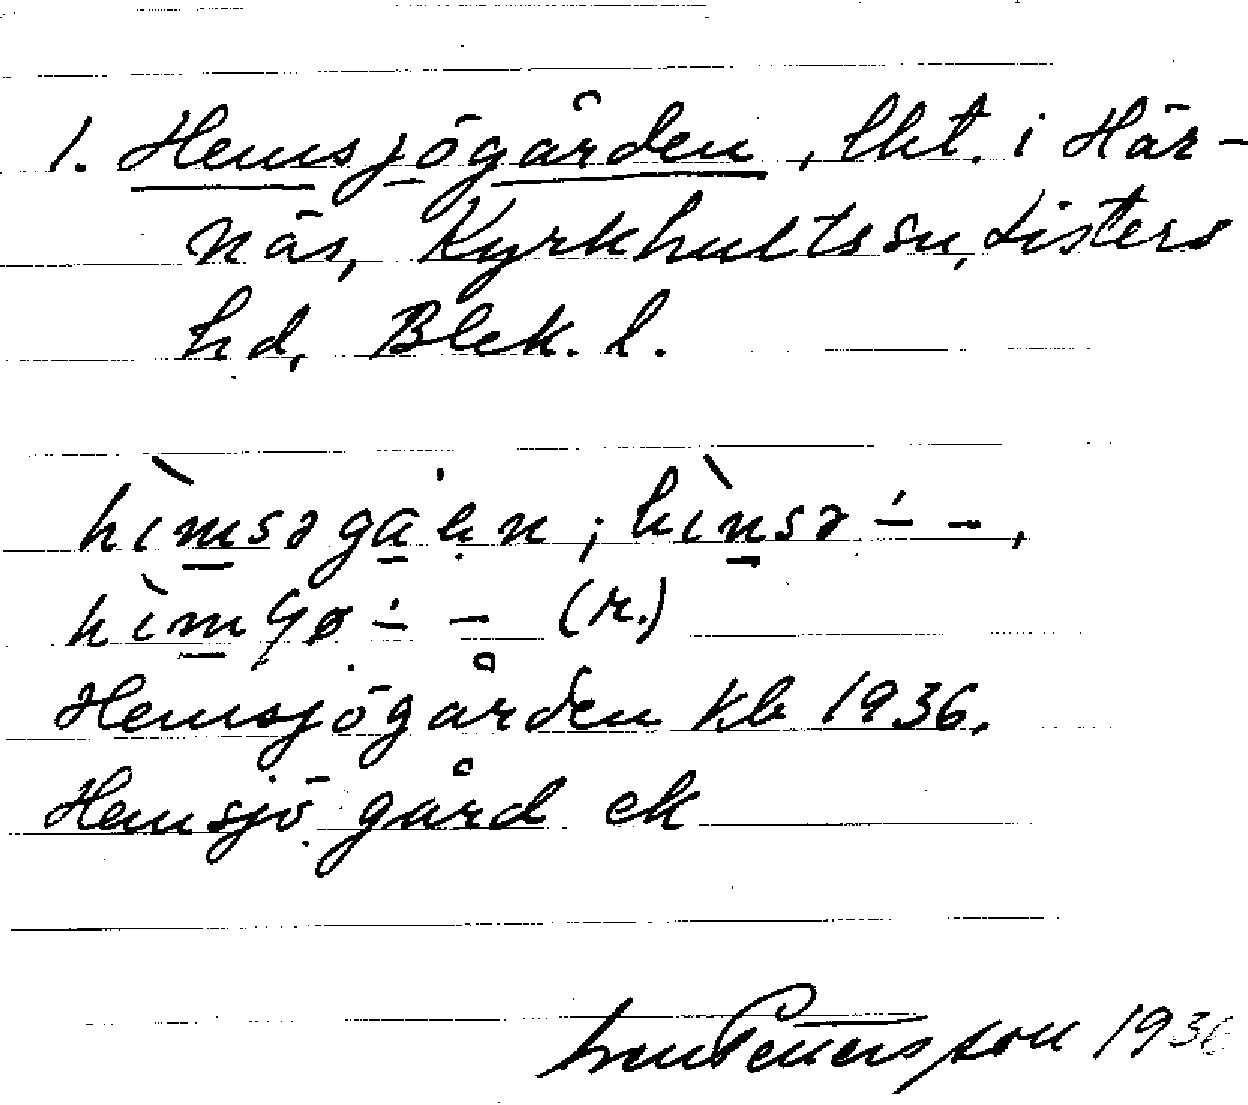 1. Hemsjögården, lht. i Här-
näs, Kyrkhults sn, Listers
hd, Blek. l.
hìmsəgáen; hìnsə ∸ -,
hìmʃø ∸ - (r.)
Hemsjögården kb 1936.
Hemsjö gård ek
Pettersson 1936